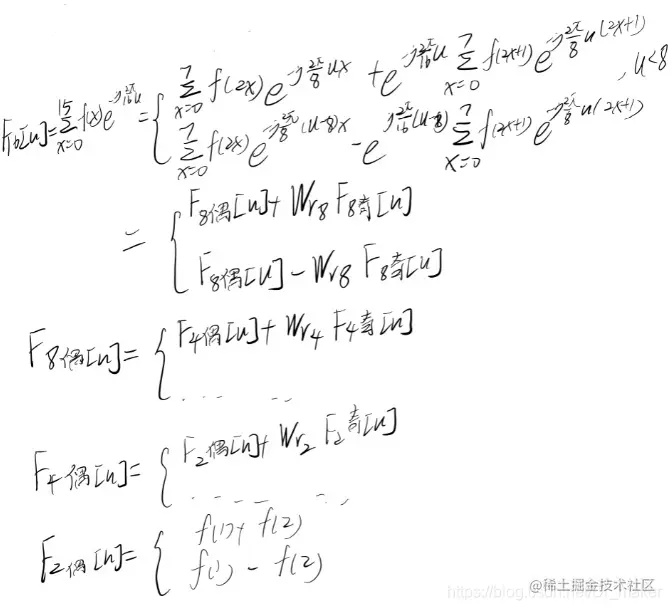 F₁₆[u]=∑_{x=0}^{15} f(x)e^{-j\frac{2π}{16}u}={ ∑_{x=0}^{7} f(2x)e^{-j\frac{2π}{8}ux} + e^{-j\frac{2π}{16}u} ∑_{x=0}^{7} f(2x+1)e^{-j\frac{2π}{8}u(2x+1)} , u<8
∑_{x=0}^{7} f(2x)e^{-j\frac{2π}{8}(u-8)x} - e^{-j\frac{2π}{16}(u-8)} ∑_{x=0}^{7} f(2x+1)e^{-j\frac{2π}{8}u(2x+1)}
= { F₈偶[u]+Wr₈ F₈奇[u]
F₈偶[u]-Wr₈ F₈奇[u]
F₈偶[u]= { F₄偶[u]+Wr₄ F₄奇[u]
. . . . . .
F₄偶[u]= { F₂偶[u]+Wr₂ F₂奇[u]
. . . . . .
F₂偶[u]= { f(1)+f(2)
f(1)-f(2)
@稀土掘金技术社区